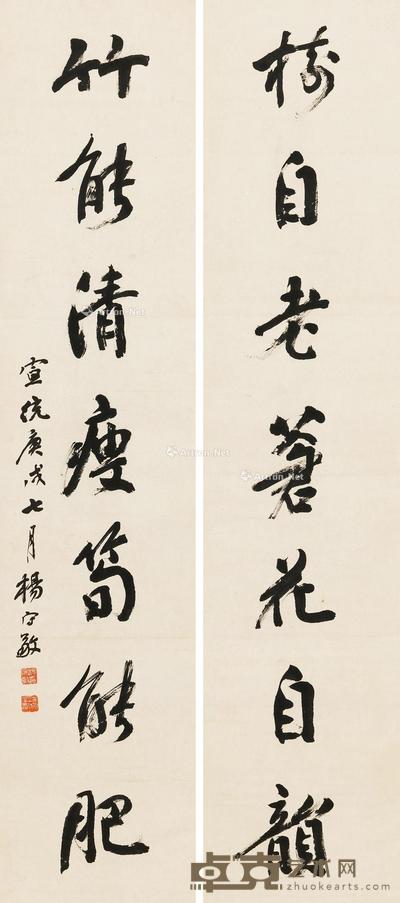 樹自老蒼花自韻
竹能清瘦筍能肥
宣統庚戌七月楊守敬
Artron.Net
Artron.Net
Artron.Net
Artron.Net
卓克艺术网
zhuokearts.com